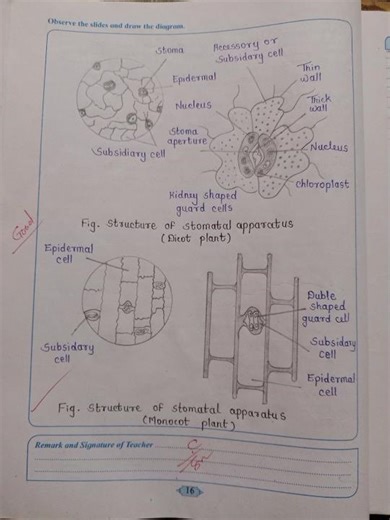 Observe the slides and draw the diagram.
Stoma
Accessory or
Subsidary cell
Thin
wall
Epidermal
Nucleus
Thick
wall
Stoma
aperture
Nucleus
Subsidiary cell
Chloroplast
Kidney shaped
guard cells
Good
Fig. Structure of stomatal apparatus
(Dicot plant)
Epidermal
cell
Duble
shaped
guard cell
Subsidary
cell
Subsidary
cell
Epidermal
cell
Fig. Structure of stomatal apparatus
(Monocot plant)
Remark and Signature of Teacher
16